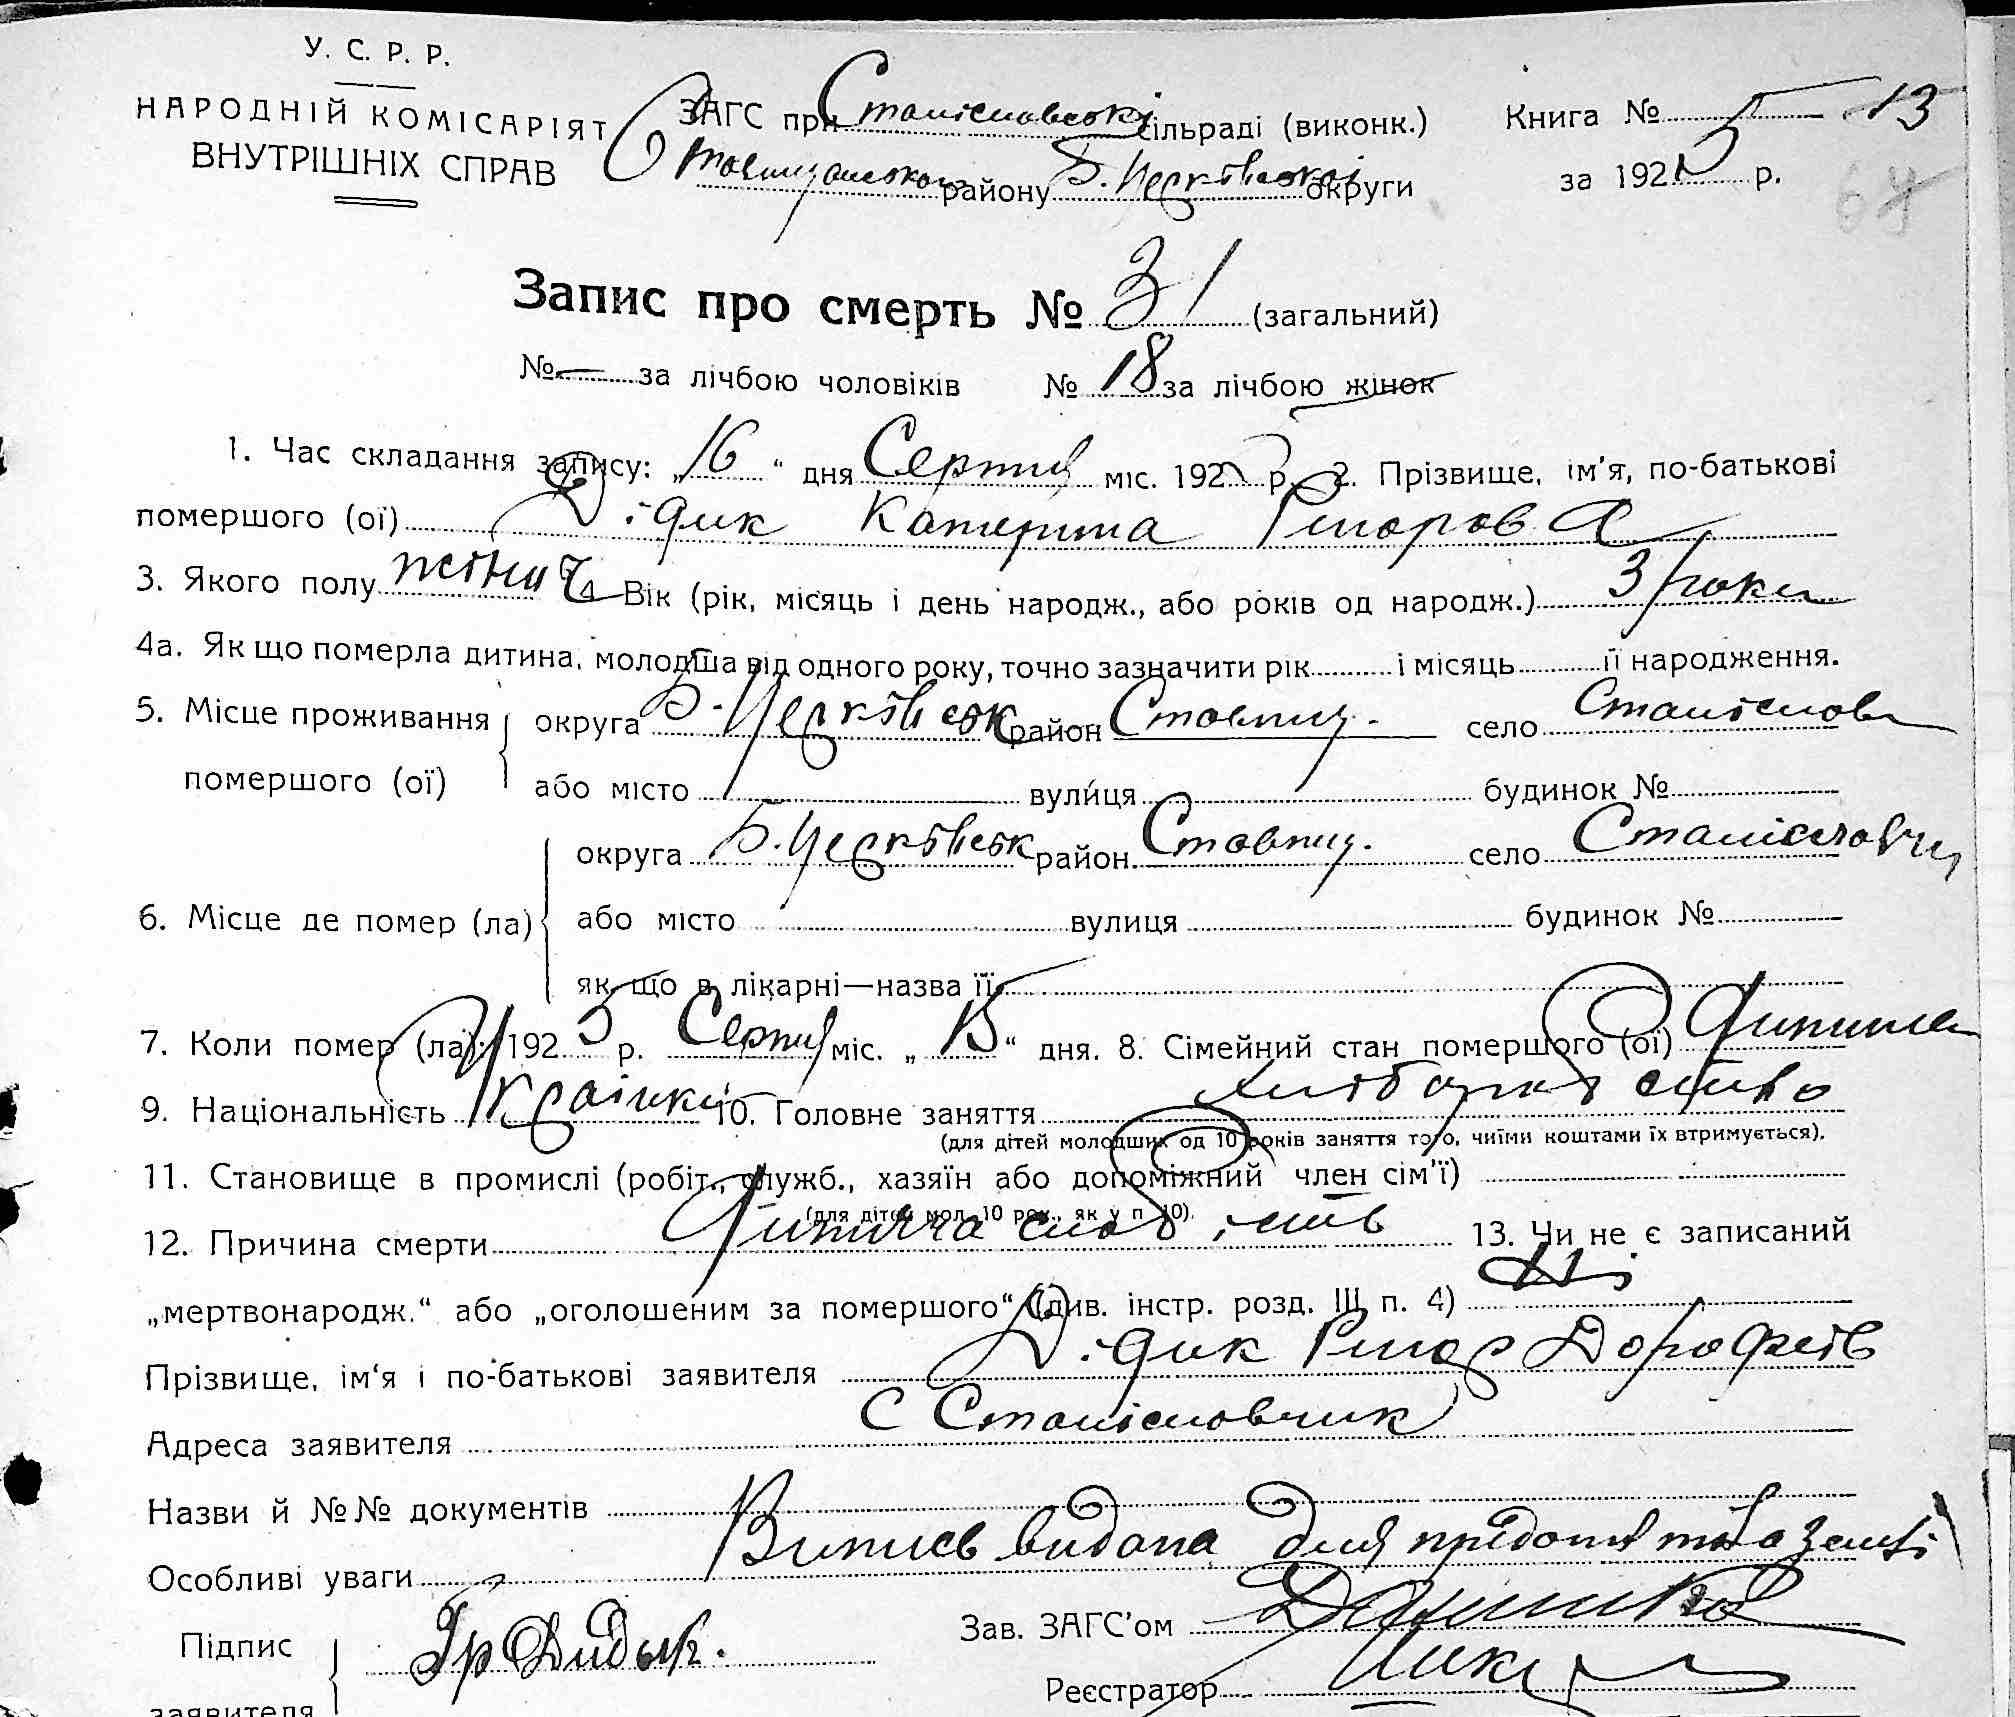 У. С. Р. Р.
НАРОДНІЙ КОМІСАРІЯТ
ВНУТРІШНІХ СПРАВ
ЗАГС при Станіславській сільраді (виконк.)
району Б. Церківської округи
Книга № 5 13
за 1925 р.
64
Запис про смерть № 31 (загальний)
№ — за лічбою чоловіків № 18 за лічбою жінок
1. Час складання запису: „16“ дня Серпня міс. 1925 р. 2. Прізвище, ім'я, по-батькові
помершого (ої) Дідик Катерина Григорова
3. Якого полу жіноч 4 Вік (рік, місяць і день народж., або років од народж.) 3 роки
4а. Як що померла дитина, молодша від одного року, точно зазначити рік і місяць її народження.
5. Місце проживання помершого (ої) округа Б. Церківськ район Ставищ. село
або місто вулиця будинок №
округа Б. Церківськ район Ставищ. село Станіславчик
6. Місце де помер (ла) або місто вулиця будинок №
як що в лікарні—назва її
7. Коли помер (ла): 1925 р. Серпня міс. „15“ дня. 8. Сімейний стан помершого (ої) Дитина
9. Національність Українка 10. Головне заняття хліборобство
(для дітей молодших од 10 років заняття того, чиїми коштами їх втримується).
11. Становище в промислі (робіт., служб., хазяїн або допоміжний член сім'ї)
(для дітей мол. 10 рок., як у п. 10).
12. Причина смерти Дитяча слабість 13. Чи не є записаний
„мертвонародж.“ або „оголошеним за помершого“ (див. інстр. розд. III п. 4) Ні
Прізвище, ім'я і по-батькові заявителя Дідик Григор Дорофеїв
Адреса заявителя С Станіславчик
Назви й №№ документів
Особливі уваги Випись видана для
Підпис заявителя Гр Дидык.
Зав. ЗАГС'ом
Реєстратор